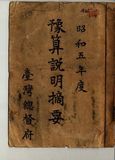 昭和五年度
豫算說明摘要
臺灣總督府